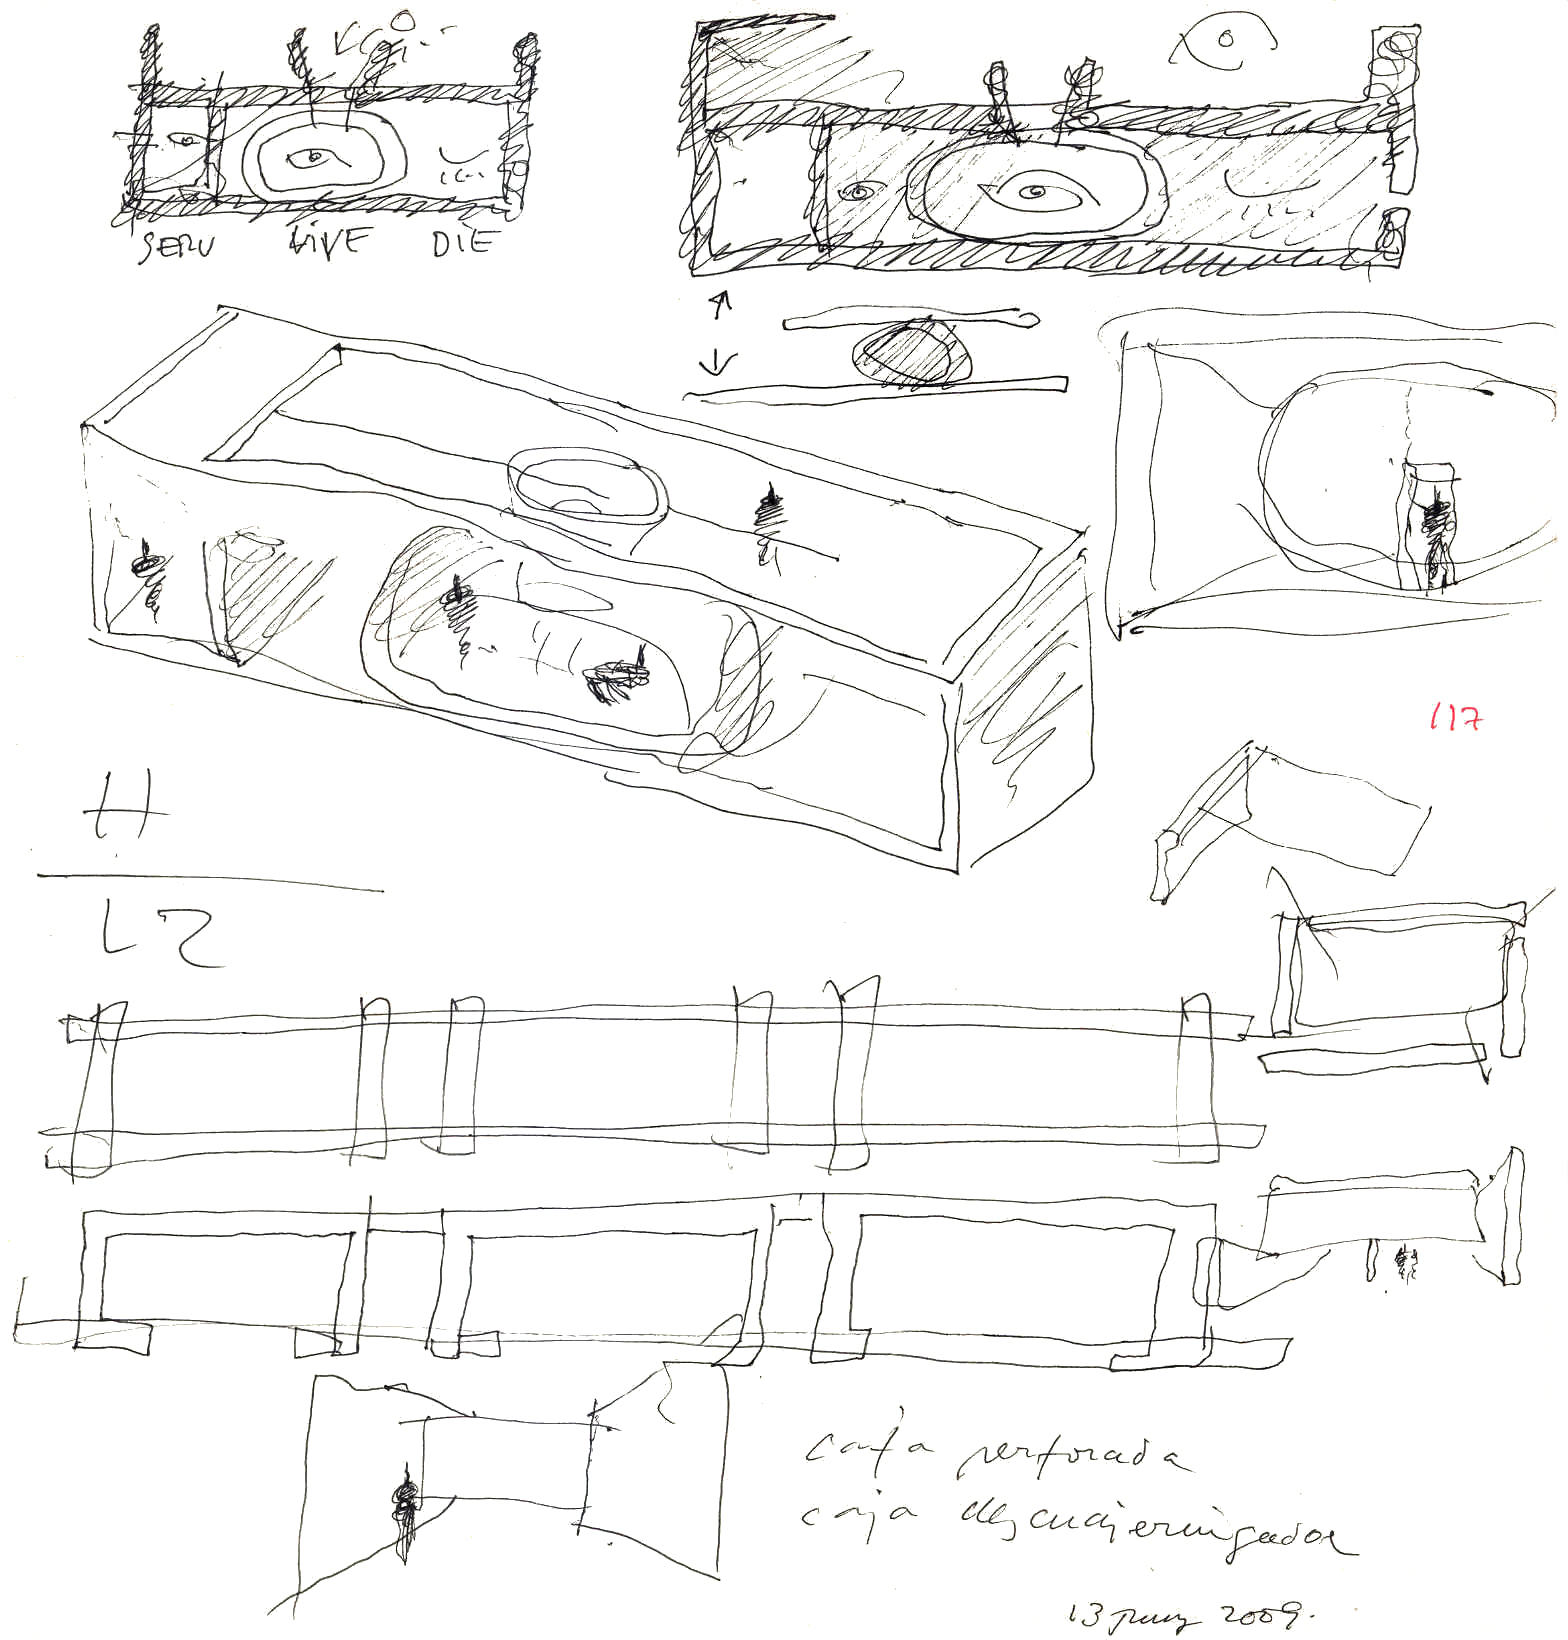 SERV LIVE DIE
117
caja perforada
caja descuajeringada
13 juny 2009.